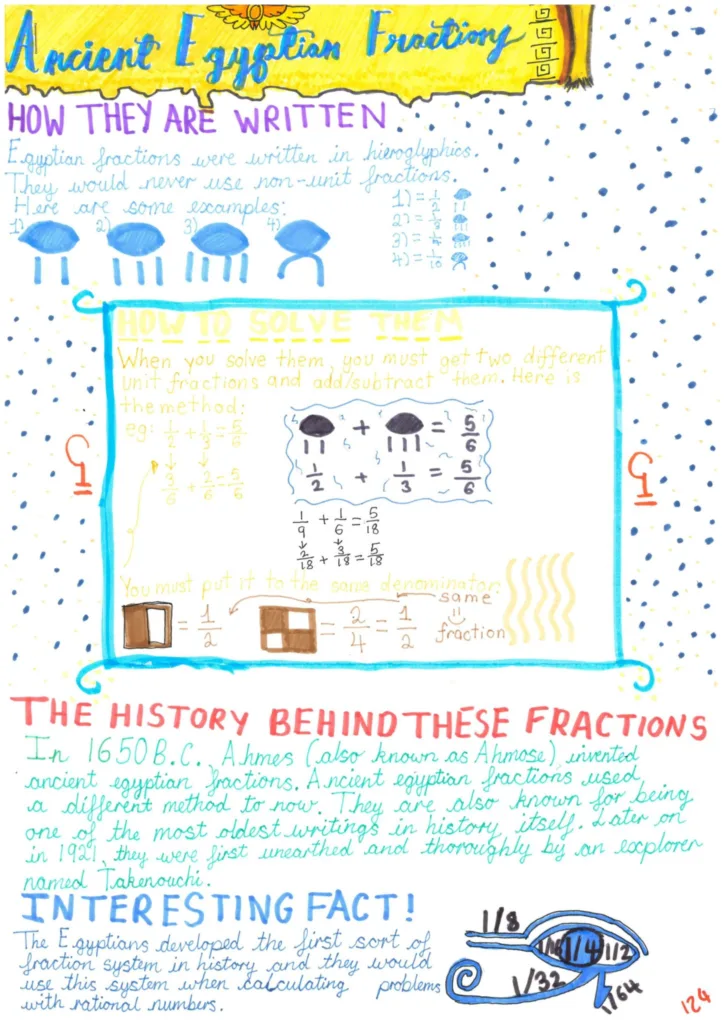 Ancient Egyptian Fractions
HOW THEY ARE WRITTEN
Egyptian fractions were written in hieroglyphics.
They would never use non-unit fractions.
Here are some examples:
1) 2) 3) 4)
1) = 1/2
2) = 1/3
3) = 1/4
4) = 1/10
HOW TO SOLVE THEM
When you solve them, you must get two different
unit fractions and add/subtract them. Here is
the method:
eg: 1/2 + 1/3 = 5/6
3/6 + 2/6 = 5/6
+ = 5/6
1/2 + 1/3 = 5/6
1/9 + 1/6 = 5/18
2/18 + 3/18 = 5/18
You must put it to the same denominator.
= 1/2 = 2/4 = 1/2
same
fraction
THE HISTORY BEHIND THESE FRACTIONS
In 1650 B.C. Ahmes (also known as Ahmose), invented
ancient egyptian fractions. Ancient egyptian fractions used
a different method to now. They are also known for being
one of the most oldest writings in history itself. Later on
in 1921, they were first unearthed and thoroughly by an explorer
named Takenouchi.
INTERESTING FACT!
The Egyptians developed the first sort of
fraction system in history and they would
use this system when calculating problems
with rational numbers.
1/8
1/16 1/4 1/2
1/32
1/64
124